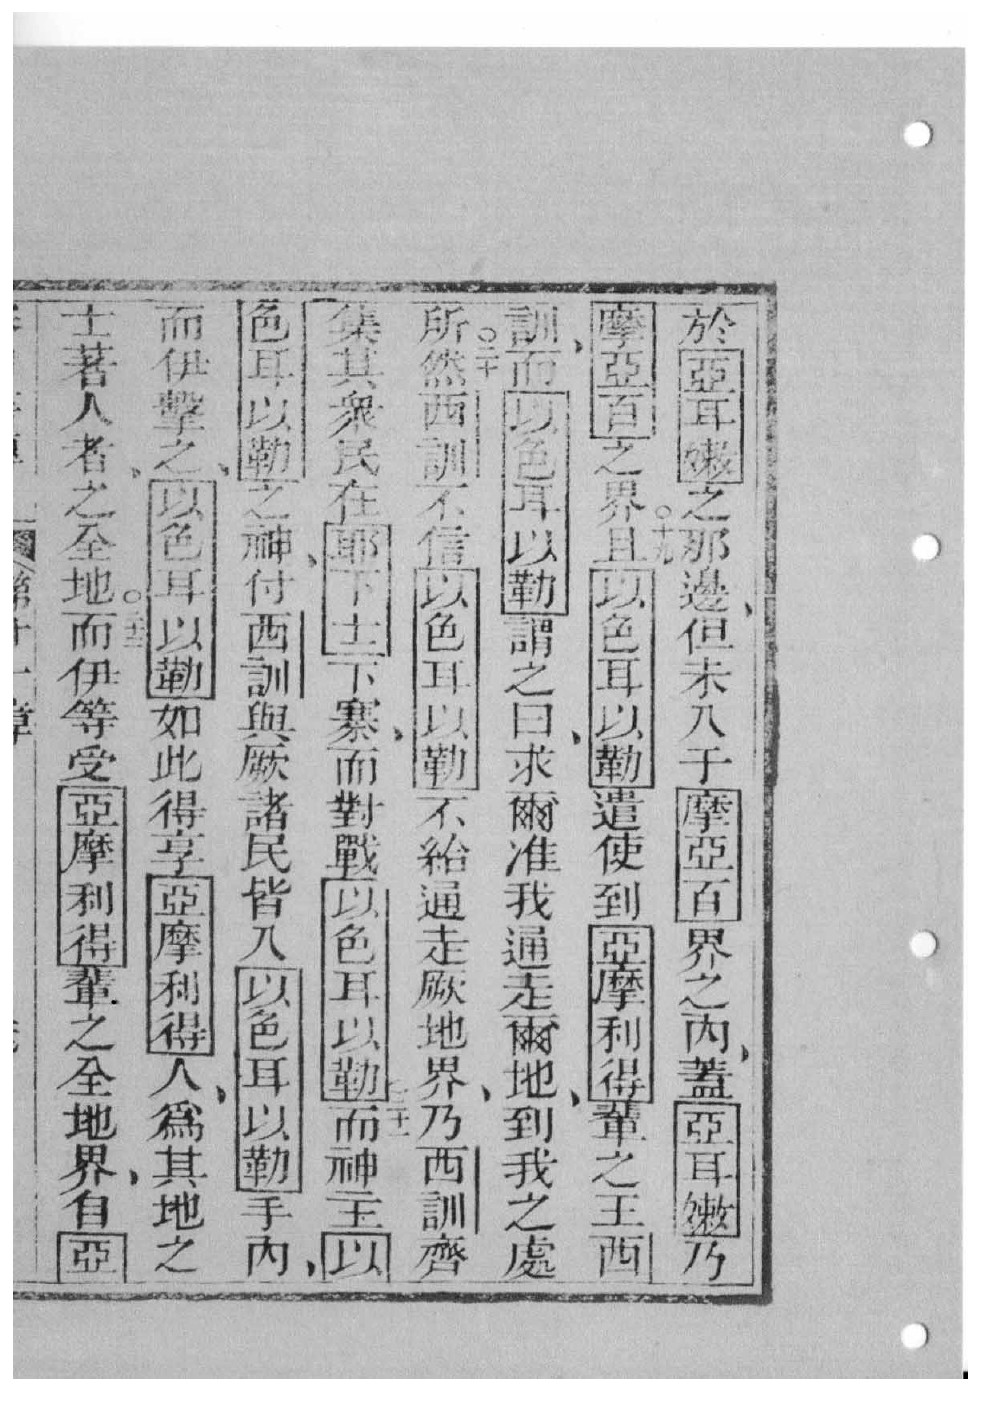 於亞耳嫩之那邊、但未入于摩亞百界之內、蓋亞耳嫩乃
摩亞百之界○十九且以色耳以勒遣使到亞摩利得輩之王西
訓、而以色耳以勒謂之曰、求爾准我通走爾地、到我之處
所○二十然西訓不信以色耳以勒不給通走厥地界、乃西訓齊
集其衆民在耶下士下寨、而對戰以色耳以勒○二十一而神主以
色耳以勒之神、付西訓與厥諸民皆入以色耳以勒手內、
而伊擊之、以色耳以勒如此得享亞摩利得人、爲其地之
士著人者、之全地○二十二而伊等受亞摩利得輩之全地界、自亞
第十一章